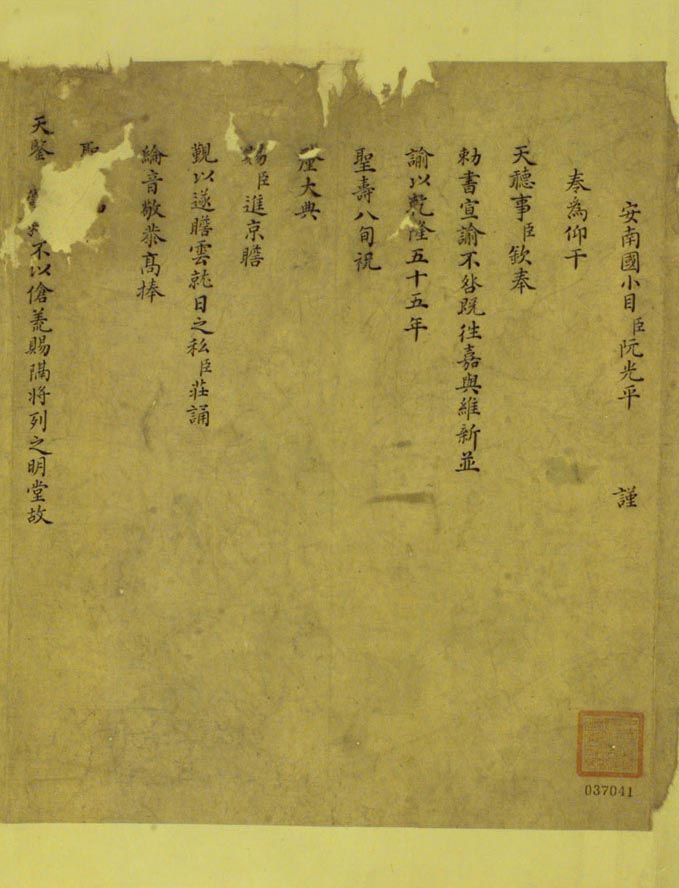 安南國小目臣阮光平 謹
奏為仰干
天聽事臣欽奉
勅書宣諭不咎既徃嘉與維新並
諭以乾隆五十五年
聖壽八旬祝
釐大典
臣進京瞻
覲以遂瞻雲就日之私臣莊誦
綸音敬恭高捧
天鑒 不以傖荒賜隔将列之明堂故
037041